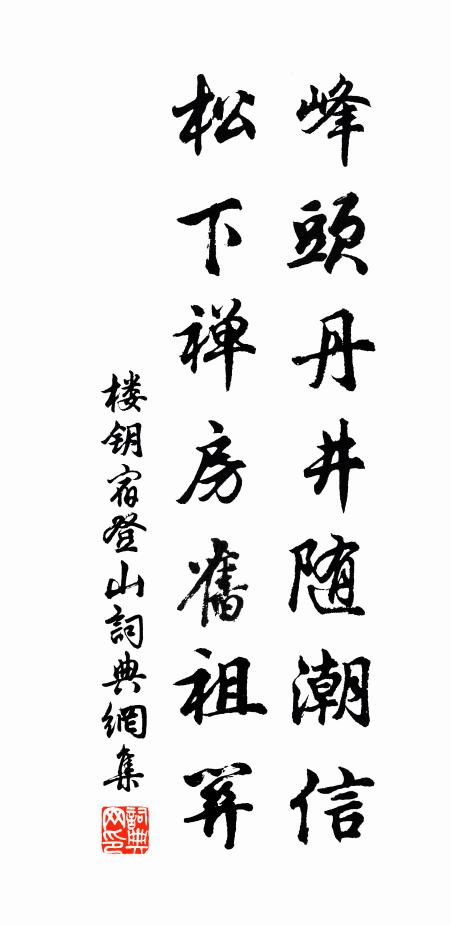 峰頭丹井随潮信
松下禅房舊祖開
楼钥宿登山詞典網集
詞典网印